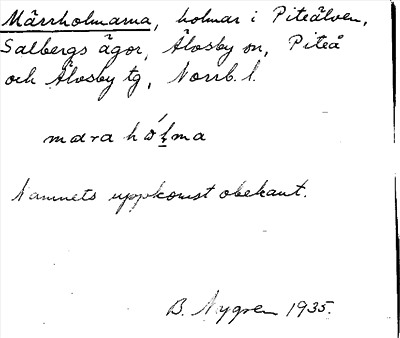 Märrholmarna, holmar i Piteälven,
Salbergs ägor, Älvsby sn, Piteå
och Älvsby tg, Norrb. l.
mara hólma
Namnets uppkomst obekant.
B. Nygren 1935.